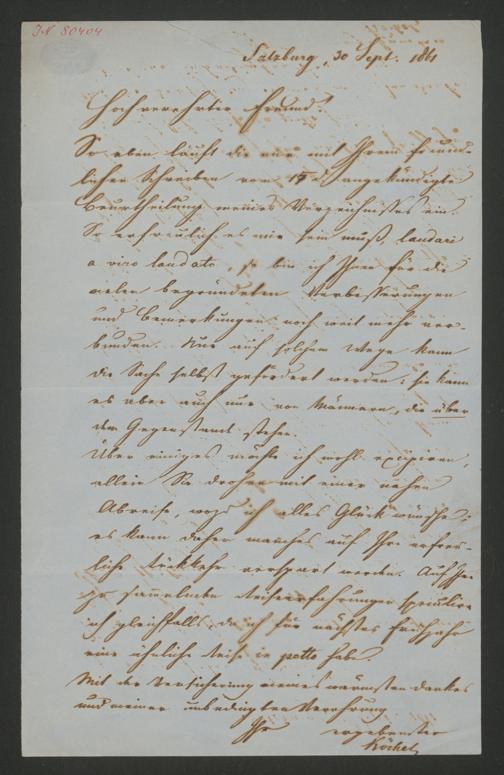 IN 80404
Salzburg, 30 Sept. 1861
Hochverehrter Freund!
So eben läuft die mir mit Ihrem freund-
lichen Schreiben vom angekündigte
Beurtheilung meines Verzeichnisses ein.
So erfreulich es mir sein muß, laudari
a viro laudato, so bin ich Ihnen für die
vielen begründeten Verbesserungen
und Bemerkungen noch weit mehr ver-
bunden. Nur auf solchem Wege kann
die Sache selbst gefördert werden; sie kann
es aber auch nur von Männern, die über
dem Gegenstand stehen.
Über einiges möchte ich wohl
allein Sie drohen mit einer nahen
Abreise, wozu ich alles Glück wünsche;
es kann daher manches auf Ihre erfreu-
liche Rückkehr verspart werden. Auf Ihre
zu sammelnden Reiseerfahrungen spekulire
ich gleichfalls, da ich für nächstes Frühjahr
eine ähnliche Reise in petto habe.
Mit der Versicherung meines wärmsten Dankes
und meiner unbedingten Verehrung
Ihr ergebenster
Köchel